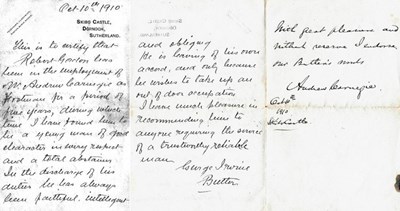 Oct 10th 1910
SKIBO CASTLE,
DORNOCH,
SUTHERLAND.
This is to certify that
Robert Gordon has
been in the employment of
Mr Andrew Carnegie as
footman for a period of
years, during which
time I have found him to
be a young man of good
character in every respect
and a total abstainer
In the discharge of his
duties he has always
been faithful, intelligent
and obliging
He is leaving of his own
accord, and only because
he wishes to take up an
out of door occupation
I have much pleasure in
recommending him to
anyone requiring the services
of a trustworthy reliable
man
George Irvine
Butler
With great pleasure and
without reserve I endorse
our Butler's words
Andrew Carnegie
Oct
1910
Skibo Castle